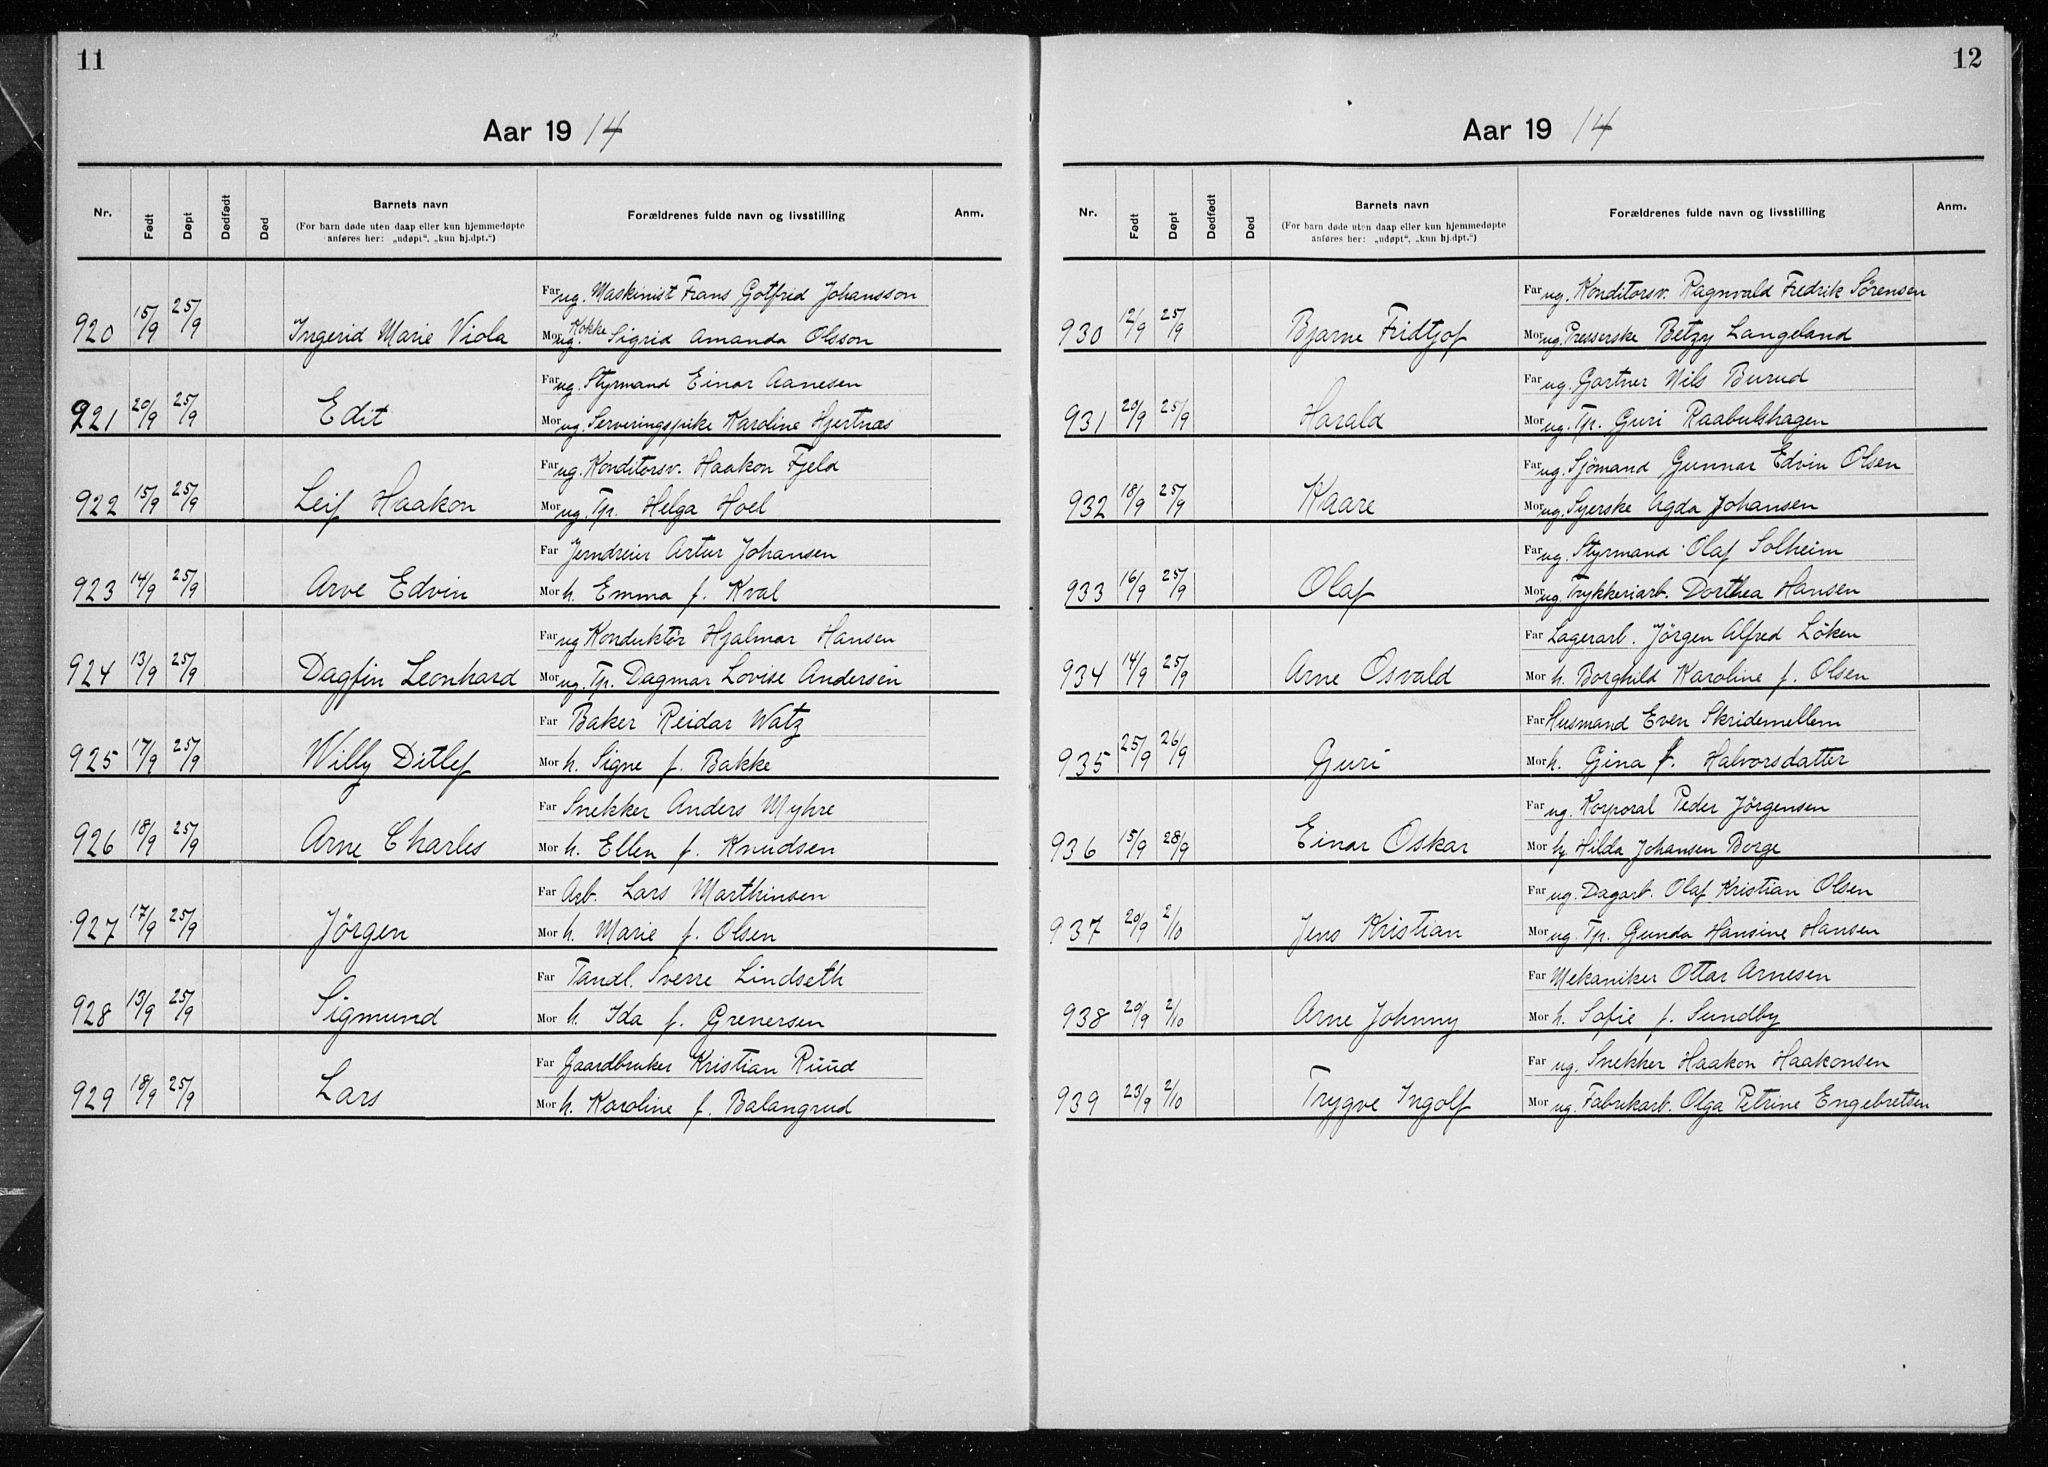 11
Aar 1914
Nr. Født Døpt Dødfødt Død Barnets navn Forældrenes fulde navn og livsstilling Anm.
(For barn døde uten daap eller kun hjemmedøpte
anføres her: „udøpt“, „kun hj.dpt.“)
Far ug. Maskinist Frans Gotfrid Johansson
920 15/9 25/9 Ingerid Marie Viola Mor ug. Kokke Sigrid Amanda Olsson
Far ug. Styrmand Einar Aanesen
921 20/9 25/9 Edit Mor ug. Serveringspike Karoline Hjertnæs
Far ug. Konditorsv. Haakon Fjeld
922 15/9 25/9 Leif Haakon Mor ug. Tp. Helga Hoel
Far Jerndreier Artur Johansen
923 14/9 25/9 Arve Edvin Mor h. Emma f. Kval
Far ug Konduktör Hjalmar Hansen
924 13/9 25/9 Dagfin Leonhard Mor ug. Tp. Dagmar Lovise Andersen
Far Baker Reidar Watz
925 17/9 25/9 Willy Ditlef Mor h. Signe f. Bakke
Far Snekker Anders Myhre
926 18/9 25/9 Arne Charles Mor h. Ellen f. Knudsen
Far Arb. Lars Marthinsen
927 17/9 25/9 Jörgen Mor h. Marie f. Olsen
Far Tandl. Sverre Lindseth
928 13/9 25/9 Sigmund Mor h. Ida f. Grenersen
Far Gaardbruker Kristian Ruud
929 18/9 25/9 Lars Mor h. Karoline f. Balangrud
12
Aar 1914
Nr. Født Døpt Dødfødt Død Barnets navn Forældrenes fulde navn og livsstilling Anm.
(For barn døde uten daap eller kun hjemmedøpte
anføres her: „udøpt“, „kun hj.dpt.“)
Far ug. Konditorsv. Ragnvald Fredrik Sørensen
930 12/9 25/9 Bjarne Fridtjof Mor ug. Presserske Betzy Langeland
Far ug. Gartner Nils Burud
931 20/9 25/9 Harald Mor ug. Tp. Guri Raabulshagen
Far ug. Sjömand Gunnar Edvin Olsen
932 18/9 25/9 Kaare Mor ug. Syerske Agda Johansen
Far ug. Styrmand Olaf Solheim
933 16/9 25/9 Olaf Mor ug. Trykkeriarb. Dorthea Hansen
Far Lagerarb. Jörgen Alfred Löken
934 14/9 25/9 Arne Osvald Mor h. Borghild Karoline f. Olsen
Far Husmand Even Skridemellem
935 25/9 26/9 Guri Mor h. Gina f. Halvorsdatter
Far ug. Korporal Peder Jörgensen
936 15/9 28/9 Einar Oskar Mor Hilda Johansen Borge
Far ug. Dagarb. Olaf Kristian Olsen
937 20/9 2/10 Jens Kristian Mor ug. Tp. Gunda Hansine Hansen
Far Mekaniker Ottar Arnesen
938 20/9 2/10 Arne Johnny Mor h. Sofie f. Sundby
Far ug. Snekker Haakon Haakonsen
939 23/9 2/10 Trygve Ingolf Mor ug. Fabrikarb. Olga Petrine Engebretsen